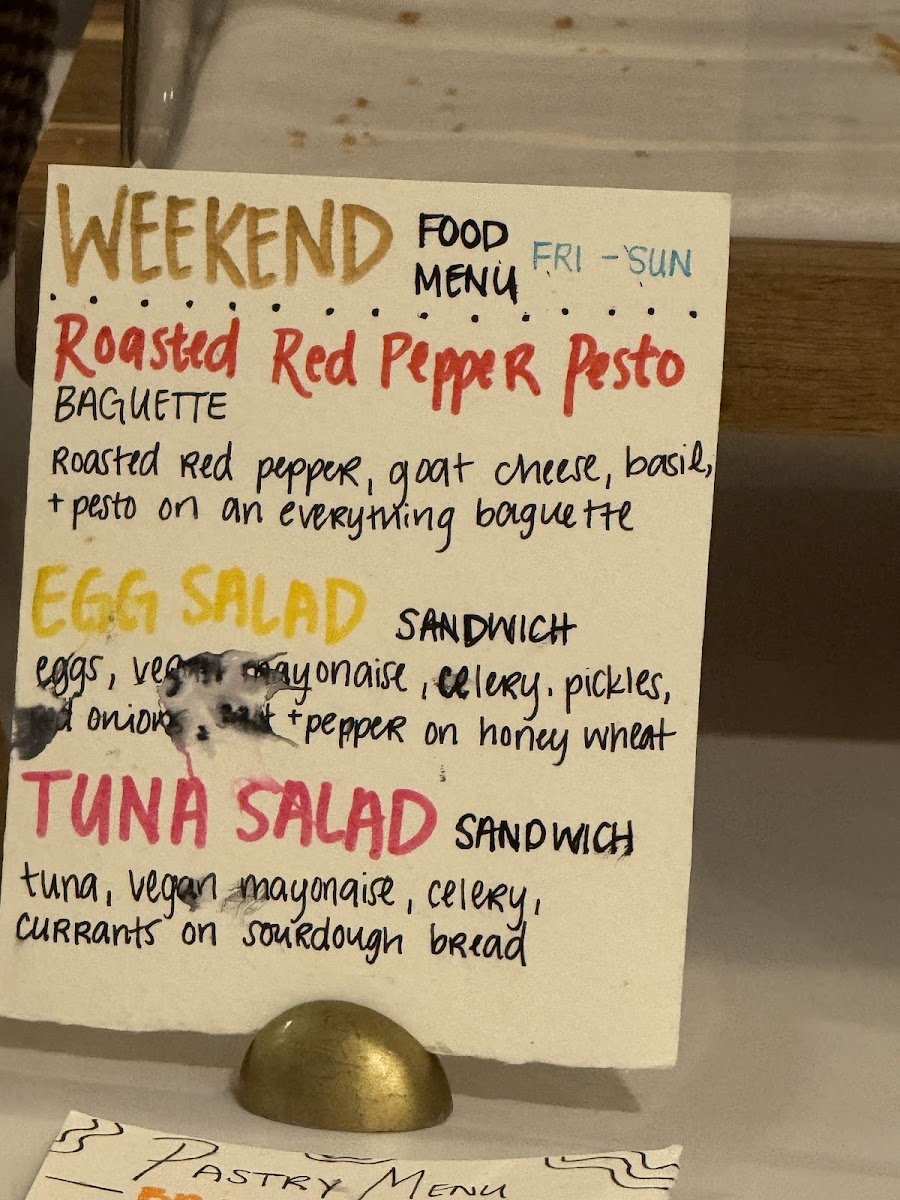 WEEKEND FOOD MENU FRI - SUN
Roasted Red Pepper Pesto
BAGUETTE
Roasted Red pepper, goat cheese, basil,
+ pesto on an everything baguette
EGG SALAD SANDWICH
eggs, vegan mayonaise, celery, pickles,
onion + pepper on honey wheat
TUNA SALAD SANDWICH
tuna, vegan mayonaise, celery,
currants on sourdough bread
PASTRY MENU